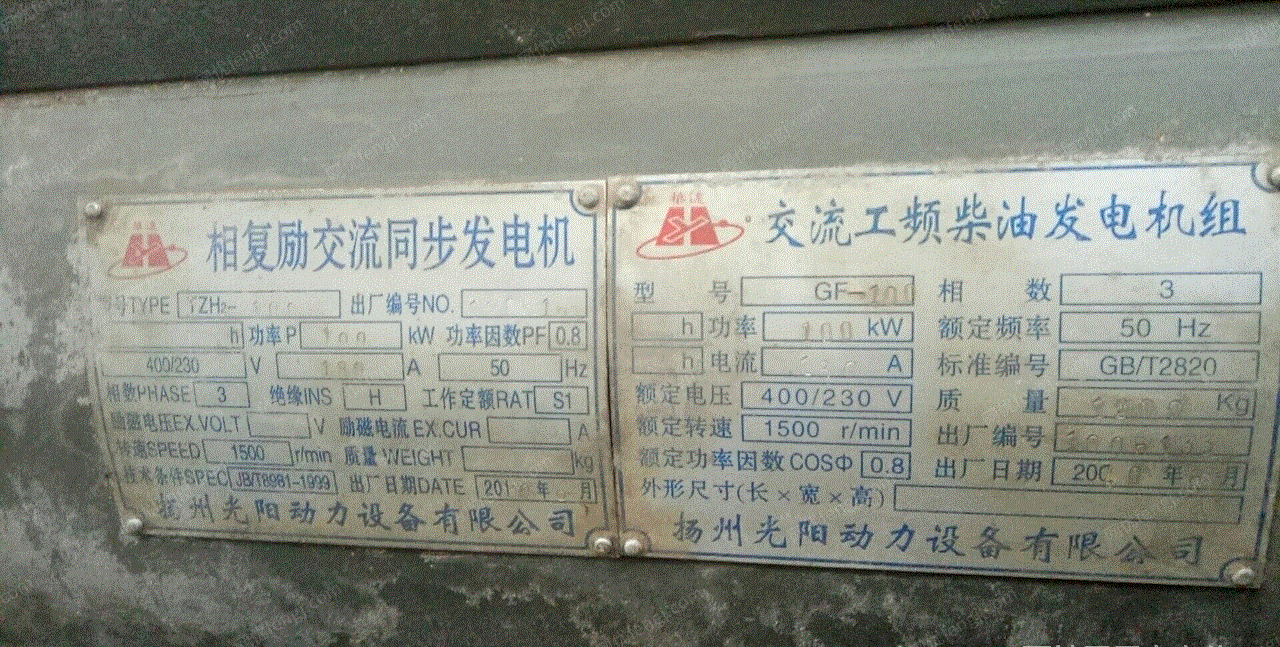 相复励交流同步发电机
型号TYPE TZH₂-100 出厂编号NO.
h 功率P 100 kW 功率因数PF 0.8
400/230 V A 50 Hz
相数PHASE 3 绝缘INS H 工作定额RAT S1
励磁电压EX.VOLT V 励磁电流EX.CUR A
转速SPEED 1500 r/min 质量WEIGHT kg
技术条件SPEC JB/T8981-1999 出厂日期DATE 年 月
扬州光阳动力设备有限公司
交流工频柴油发电机组
型号 GF-100 相数 3
h 功率 100 kW 额定频率 50 Hz
h 电流 A 标准编号 GB/T2820
额定电压 400/230 V 质量 Kg
额定转速 1500 r/min 出厂编号
额定功率因数COSΦ 0.8 出厂日期 年 月
外形尺寸(长×宽×高)
扬州光阳动力设备有限公司